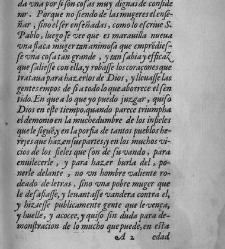 da vna por si son cosas muy dignas de conside
rar. Porque no siendo de las mugeres el ense
ñar, sino el ser enseñadas, como lo escriue S.
Pablo, luego se vee que es marauilla nueua
vna flaca muger tan animosa que emprẽdiesse
vna cosa tan grande, y tan sabia y eficaz,
que saliesse con ella, y robasse los coraçones que
trataua para hazerlos de Dios, y lleuasse las
gentes empos de si a todo lo que aborrece el sen
tido. En que a lo que yo puedo juzgar, quiso
Dios en este tiempo, quando parece triumpha
el demonio en la muchedumbre de los infieles
que le siguẽ, y en la porfia de tantos pueblos he
rejes que hazen sus partes, y en los muchos vi
cios de los fieles que son de su vando, para
enuilecerle, y para hazer burla del, po
nerle delante, no vn hombre valiente ro
deado de letras, sino vna pobre muger que
le desafiasse, y leuantasse vandera contra el,
y hiziesse publicamente gente que le vença,
y huelle, y acocee, y quiso sin duda para de-
monstracion de lo mucho que puede, en esta
A 2 edad